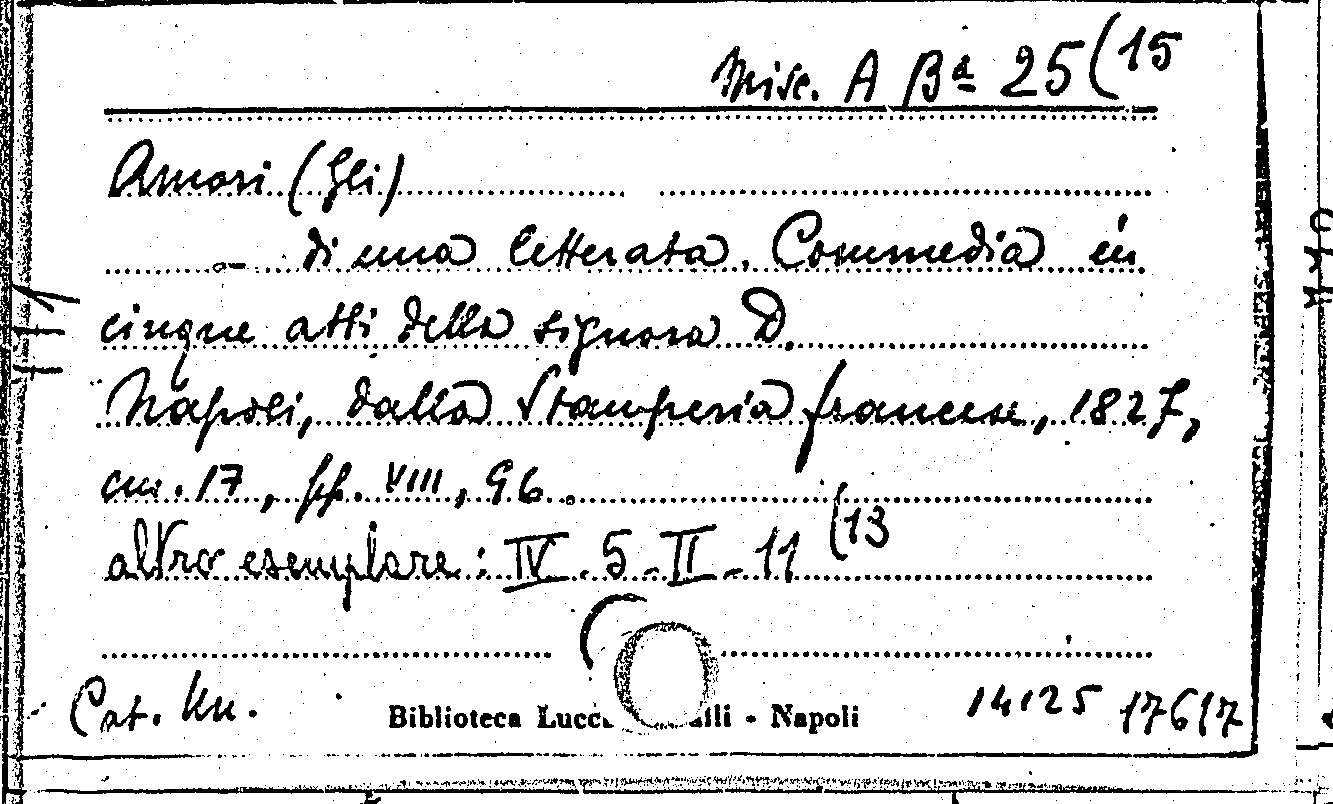 Misc. A Bª 25(15
Amori (Gli)
— di una letterata. Commedia in
cinque atti della signora D.
Napoli, dalla Stamperia francese, 1827,
cm. 17, pp. VIII, 96.
altro esemplare: IV. 5-II-11 (13
Cat. Un.
Biblioteca Lucc lli - Napoli
14125 17617